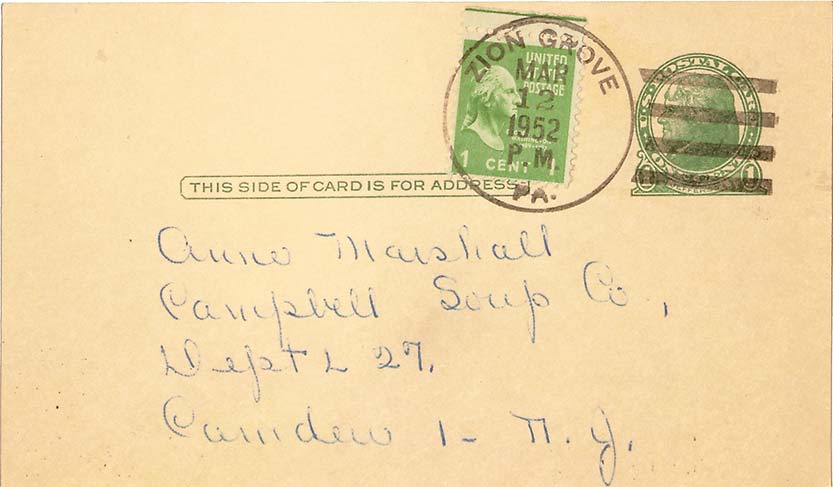 ZION GROVE
MAR
12
1952
P.M.
PA.
UNITED
STATES
POSTAGE
WASHINGTON
1 CENT 1
U.S. POSTAL CARD
1 1
THIS SIDE OF CARD IS FOR ADDRESS
Anne Marshall
Campbell Soup Co,
Dept L 27.
Camden 1- N.J.